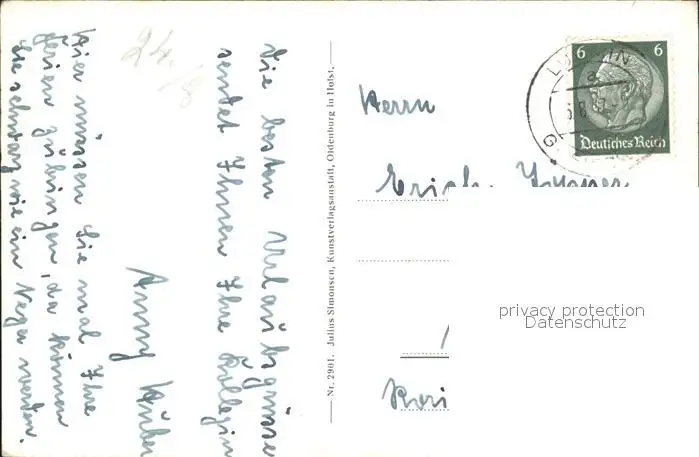 Die besten Urlaubsgrüsse
sendet Ihnen Ihre Kollegin
Anny Huber
Hier müssen Sie mal Ihre
Ferien zubringen, da können
Sie schwarz wie ein Neger werden.
24.
Nr. 2901. Julius Simonsen, Kunstverlagsanstalt, Oldenburg in Holst.
6 6
Deutsches Reich
Herrn
Erich
privacy protection
Datenschutz